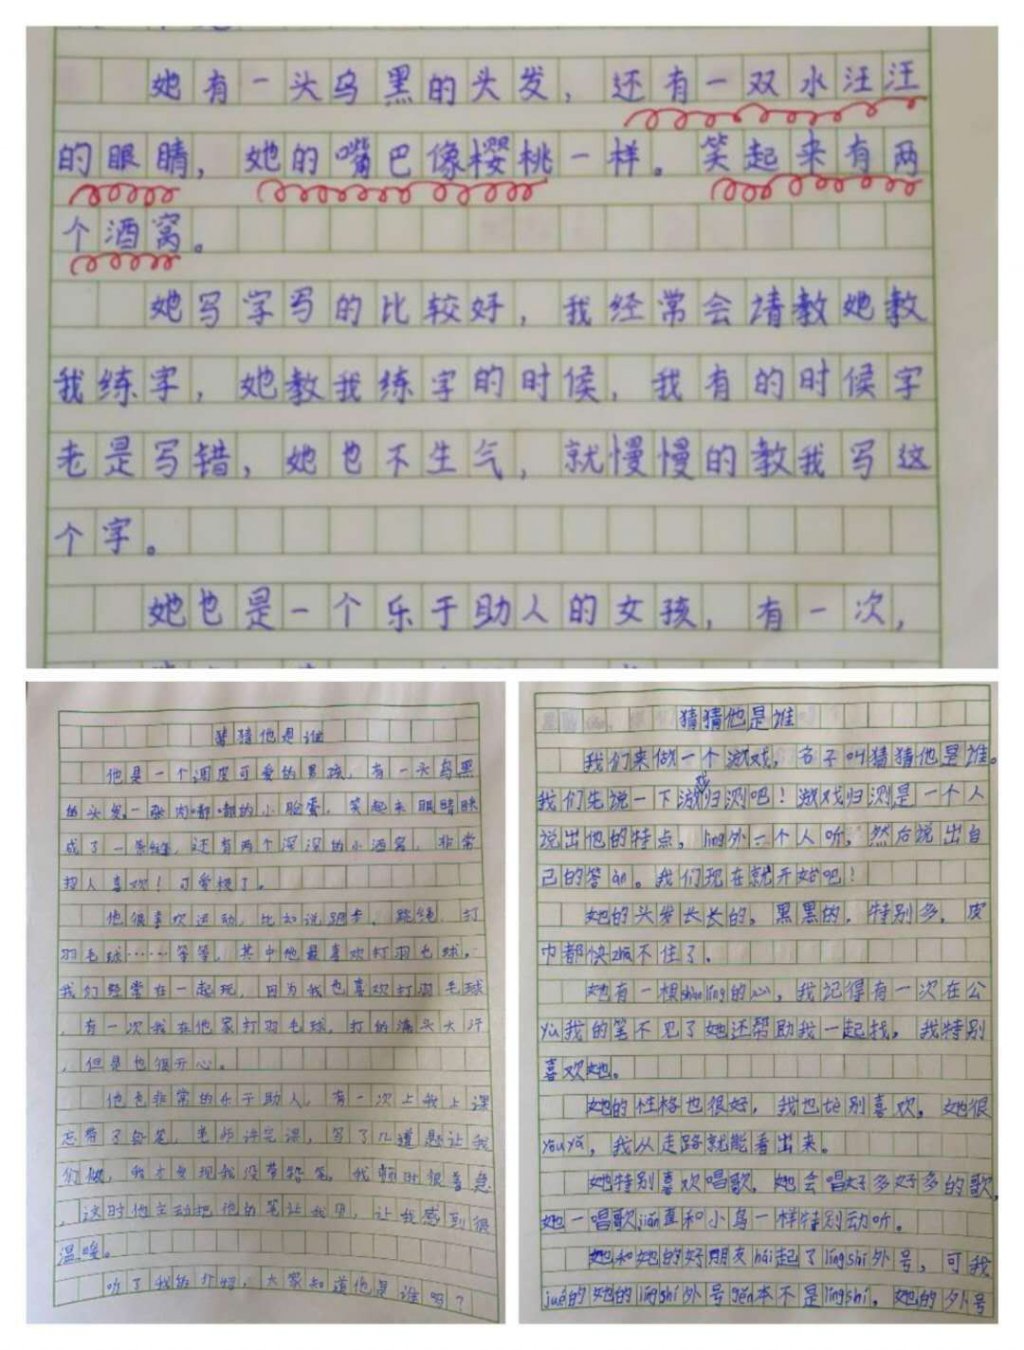 她有一头乌黑的头发，还有一双水汪汪
的眼睛，她的嘴巴像樱桃一样。笑起来有两
个酒窝。
她写字写的比较好，我经常会请教她教
我练字，她教我练字的时候，我有的时候字
老是写错，她也不生气，就慢慢的教我写这
个字。
她也是一个乐于助人的女孩，有一次，
猜猜他是谁
他是一个调皮可爱的男孩，有一头乌黑
的头发一张肉嘟嘟的小脸蛋，笑起来眼睛眯
成了一条缝，还有两个深深的小酒窝，非常
招人喜欢！可爱极了。
他很喜欢运动，比如说跑步，跳绳，打
羽毛球……等等，其中他最喜欢打羽毛球，
我们经常在一起玩，因为我也喜欢打羽毛球
，有一次我在他家打羽毛球，打的满头大汗
，但是也很开心。
他也非常的乐于助人，有一次上我上课
忘带了铅笔，老师讲完课，写了几道题让我
们做，我才发现我没带铅笔，我顿时很着急
，这时他主动把他的笔让我用，让我感到很
温暖。
听了我的介绍，大家知道他是谁吗？
猜猜他是谁
我们来做一个游戏，名子叫猜猜他是谁。
我们先说一下游戏归测吧！游戏归测是一个人
说出他的特点，lìng外一个人听，然后说出自
己的答àn。我们现在就开始吧！
她的头发长长的，黑黑的，特别多，皮
巾都快zhā不住了。
她有一颗shàn liáng的心，我记得有一次在公
yù我的笔不见了她还帮助我一起找，我特别
喜欢她。
她的性格也很好，我也特别喜欢。她很
yōu yǎ，我从走路就能看出来。
她特别喜欢唱歌，她会唱好多好多的歌，
她一唱歌jiǎn直和小鸟一样特别动听。
她和她的好朋友hái起了líng shí外号，可我
jué的她的líng shí外号gēn本不是líng shí，她的外号